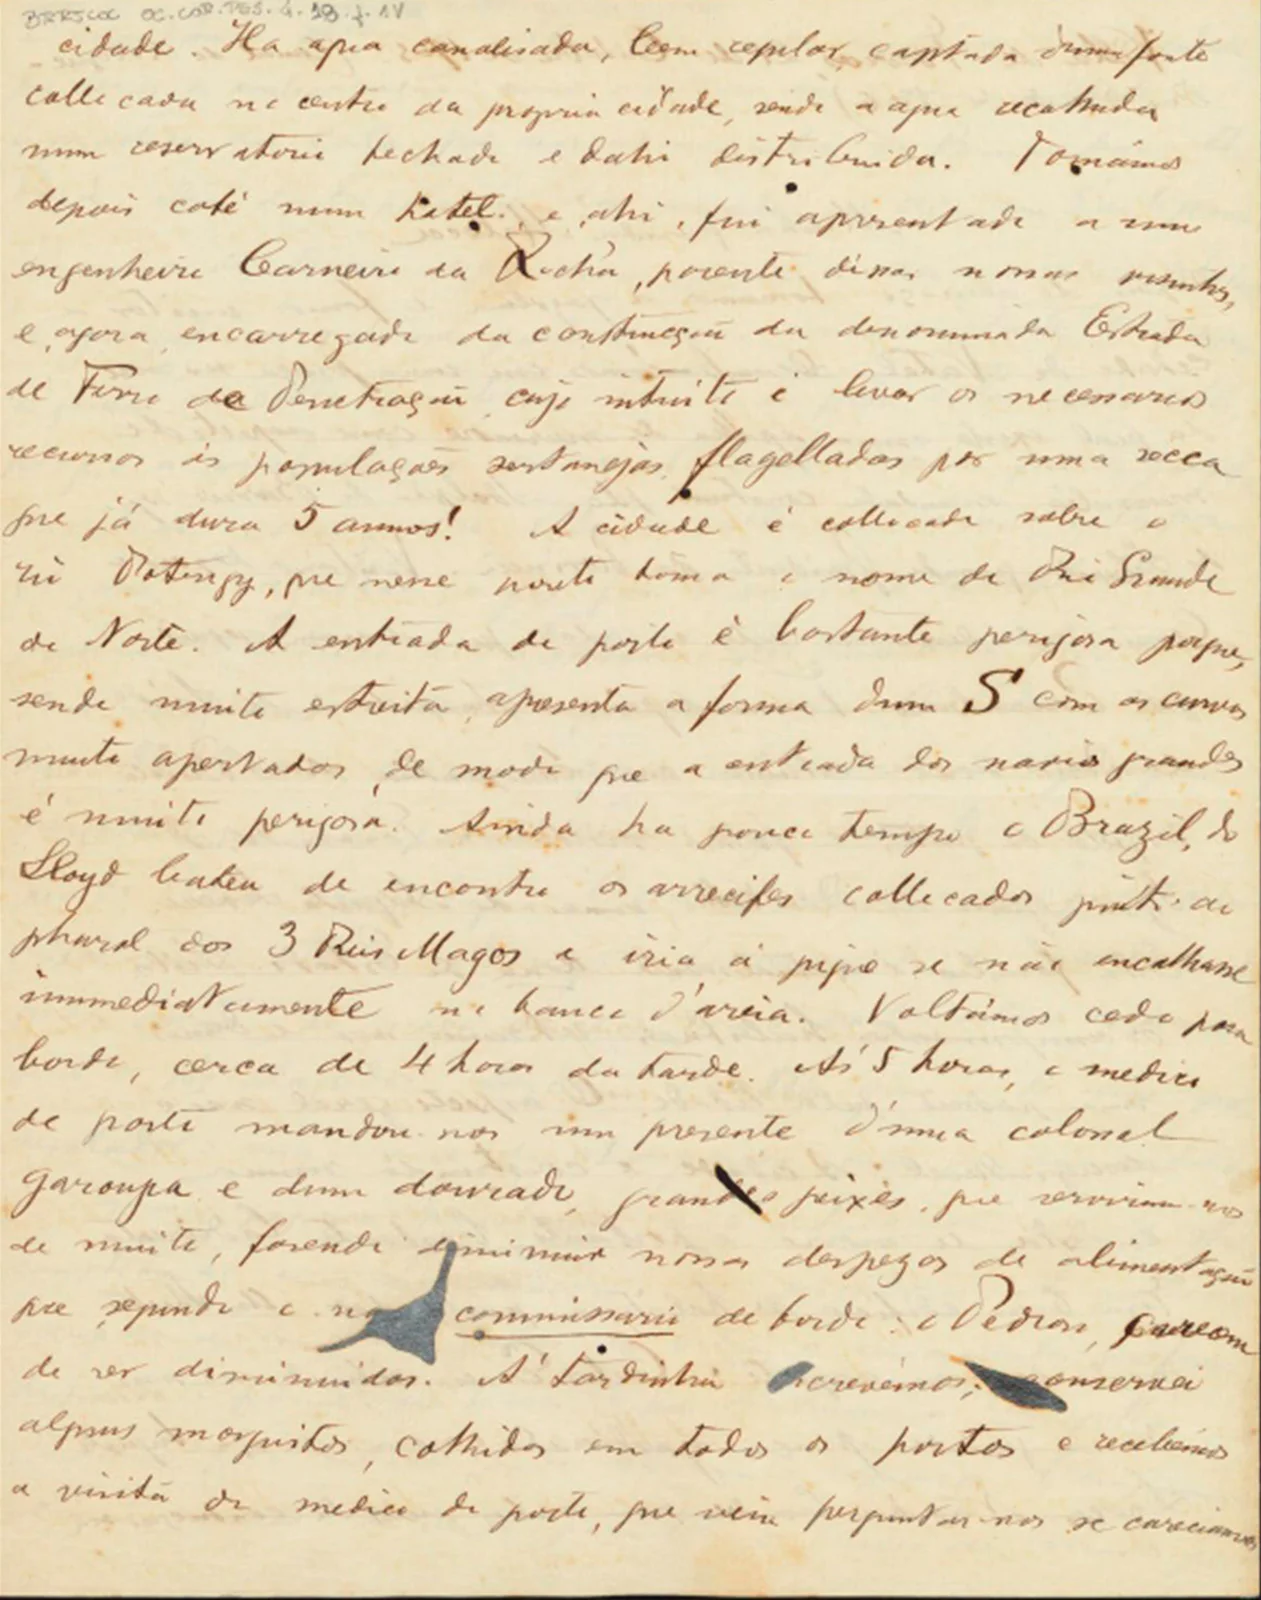 BRRJCOC OC.COR.PES.4.18.f.1V
cidade. Ha agua canalisada, bem regular, captada duma fonte
collocada no centro da propria cidade, sendo a agua recolhida
num reservatorio fechado e dahi distribuida. Tomámos
depois café num hotel e ahi fui apresentado a um
engenheiro Carneiro da Rocha, parente dessas nossas visinhas,
e agora encarregado da construcção da denominada Estrada
de Ferro de Penetração cujo intuito é levar os necessarios
recursos ás populações sertanejas flagelladas por uma secca
que já dura 5 annos! A cidade é collocada sobre o
rio Potengy, que nesse ponto toma o nome de Rio Grande
do Norte. A entrada do porto é bastante perigosa porque,
sendo muito estreita, apresenta a forma dum S com as curvas
muito apertadas, de modo que a entrada dos navios grandes
é muito perigosa. Ainda ha pouco tempo o Brazil, do
Lloyd bateu de encontro os arrecifes collocados junto ao
pharol dos 3 Reis Magos e iria á pique se não encalhasse
immediatamente no banco d'areia. Voltámos cedo para
bordo, cerca de 4 horas da tarde. Ás 5 horas, o medico
do porto mandou-nos um presente d'uma colossal
garoupa e dum dourado, grandes peixes, que serviram-nos
de muito, fasendo diminuir nossas despezas de alimentação
que segundo o commissario de bordo: o Pedroso, careciam
de ser diminuidas. Á tardinha escrevemos; conservei
alguns mosquitos, colhidos em todos os portos e recebemos
a visita do medico do porto, que veiu perguntar-nos se careciamos